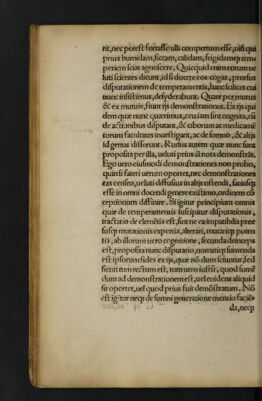 rit, nec potest fortasse ulli compertum esse, nisi qui
prius humidam, siccam, calidam, frigidamq́; temp
periem sciat agnoscere. Quicquid mihi contra uo
luti scientes dicunt, id si docere eos cogas, prorsus
disputationem de temperamentis, hanc scilicet cui
nunc insistimus, desyderabunt. Quare per mutua
& ex mutuis, fiunt ijs demonstrationes. Ex ijs qui
dem quæ nunc quærimus, ceu iam sint cognita, cũ
de actionibus disputant, & ciborum ac medicamẽ
torum facultates inuestigant, ac de somno, & alijs
id genus disserunt. Rursus autem quæ nunc sunt
proposita per illa, ueluti prius illis nota demonstrãt.
Ego uero eiusmodi demonstrationem non probo,
quin si fateri uerum oportet, nec demonstrationes
eas censeo, ueluti diffusius in alijs ostendi, satiusq́;
esse in omni docendi genere existimo, ordinem cõ
cepti sermonis diffinire. Si igitur principium omnis
quæ de temperamentis suscipitur disputationis,
tractatio de elemẽtis est, sunt ne ea impatibilia pror
susq́; mutationis expertia, an alterari, mutariq́; poten
tia, ab illorum uero cognitione, secunda deinceps
est, proposita nunc disputatio, non utiq́; sumenda
est ipsorum fides ex ijs, quæ nõ dum sciuntur, sed
sicuti tum rectum est, tum uero iustũ, quod sumẽ
dum ad demonstrationem est, uel euidens aliquid
sit oportet, uel quod prius fuit demõstratum. Nõ
est igitur neq́; de somni generatione mentio faciẽ-
da, neq́;